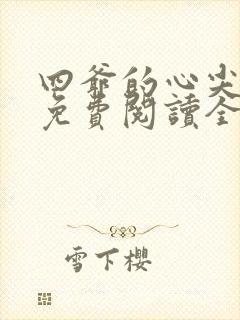 四爺的心尖
免費閱讀全
雪下櫻